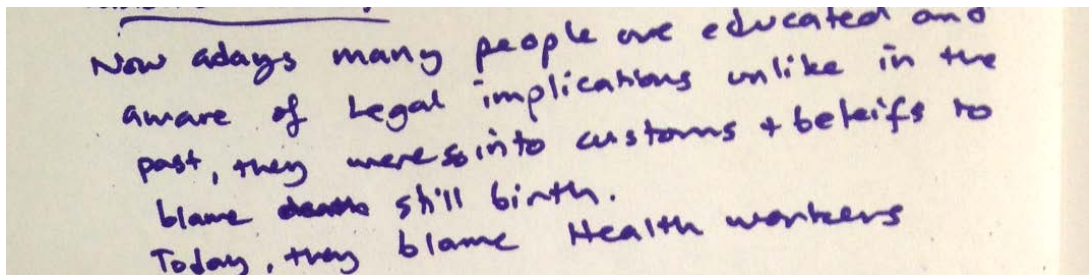 Now adays many people are educated and
aware of Legal implications unlike in the
past, they were so into customs + beleifs to
blame still birth.
Today, they blame Health workers